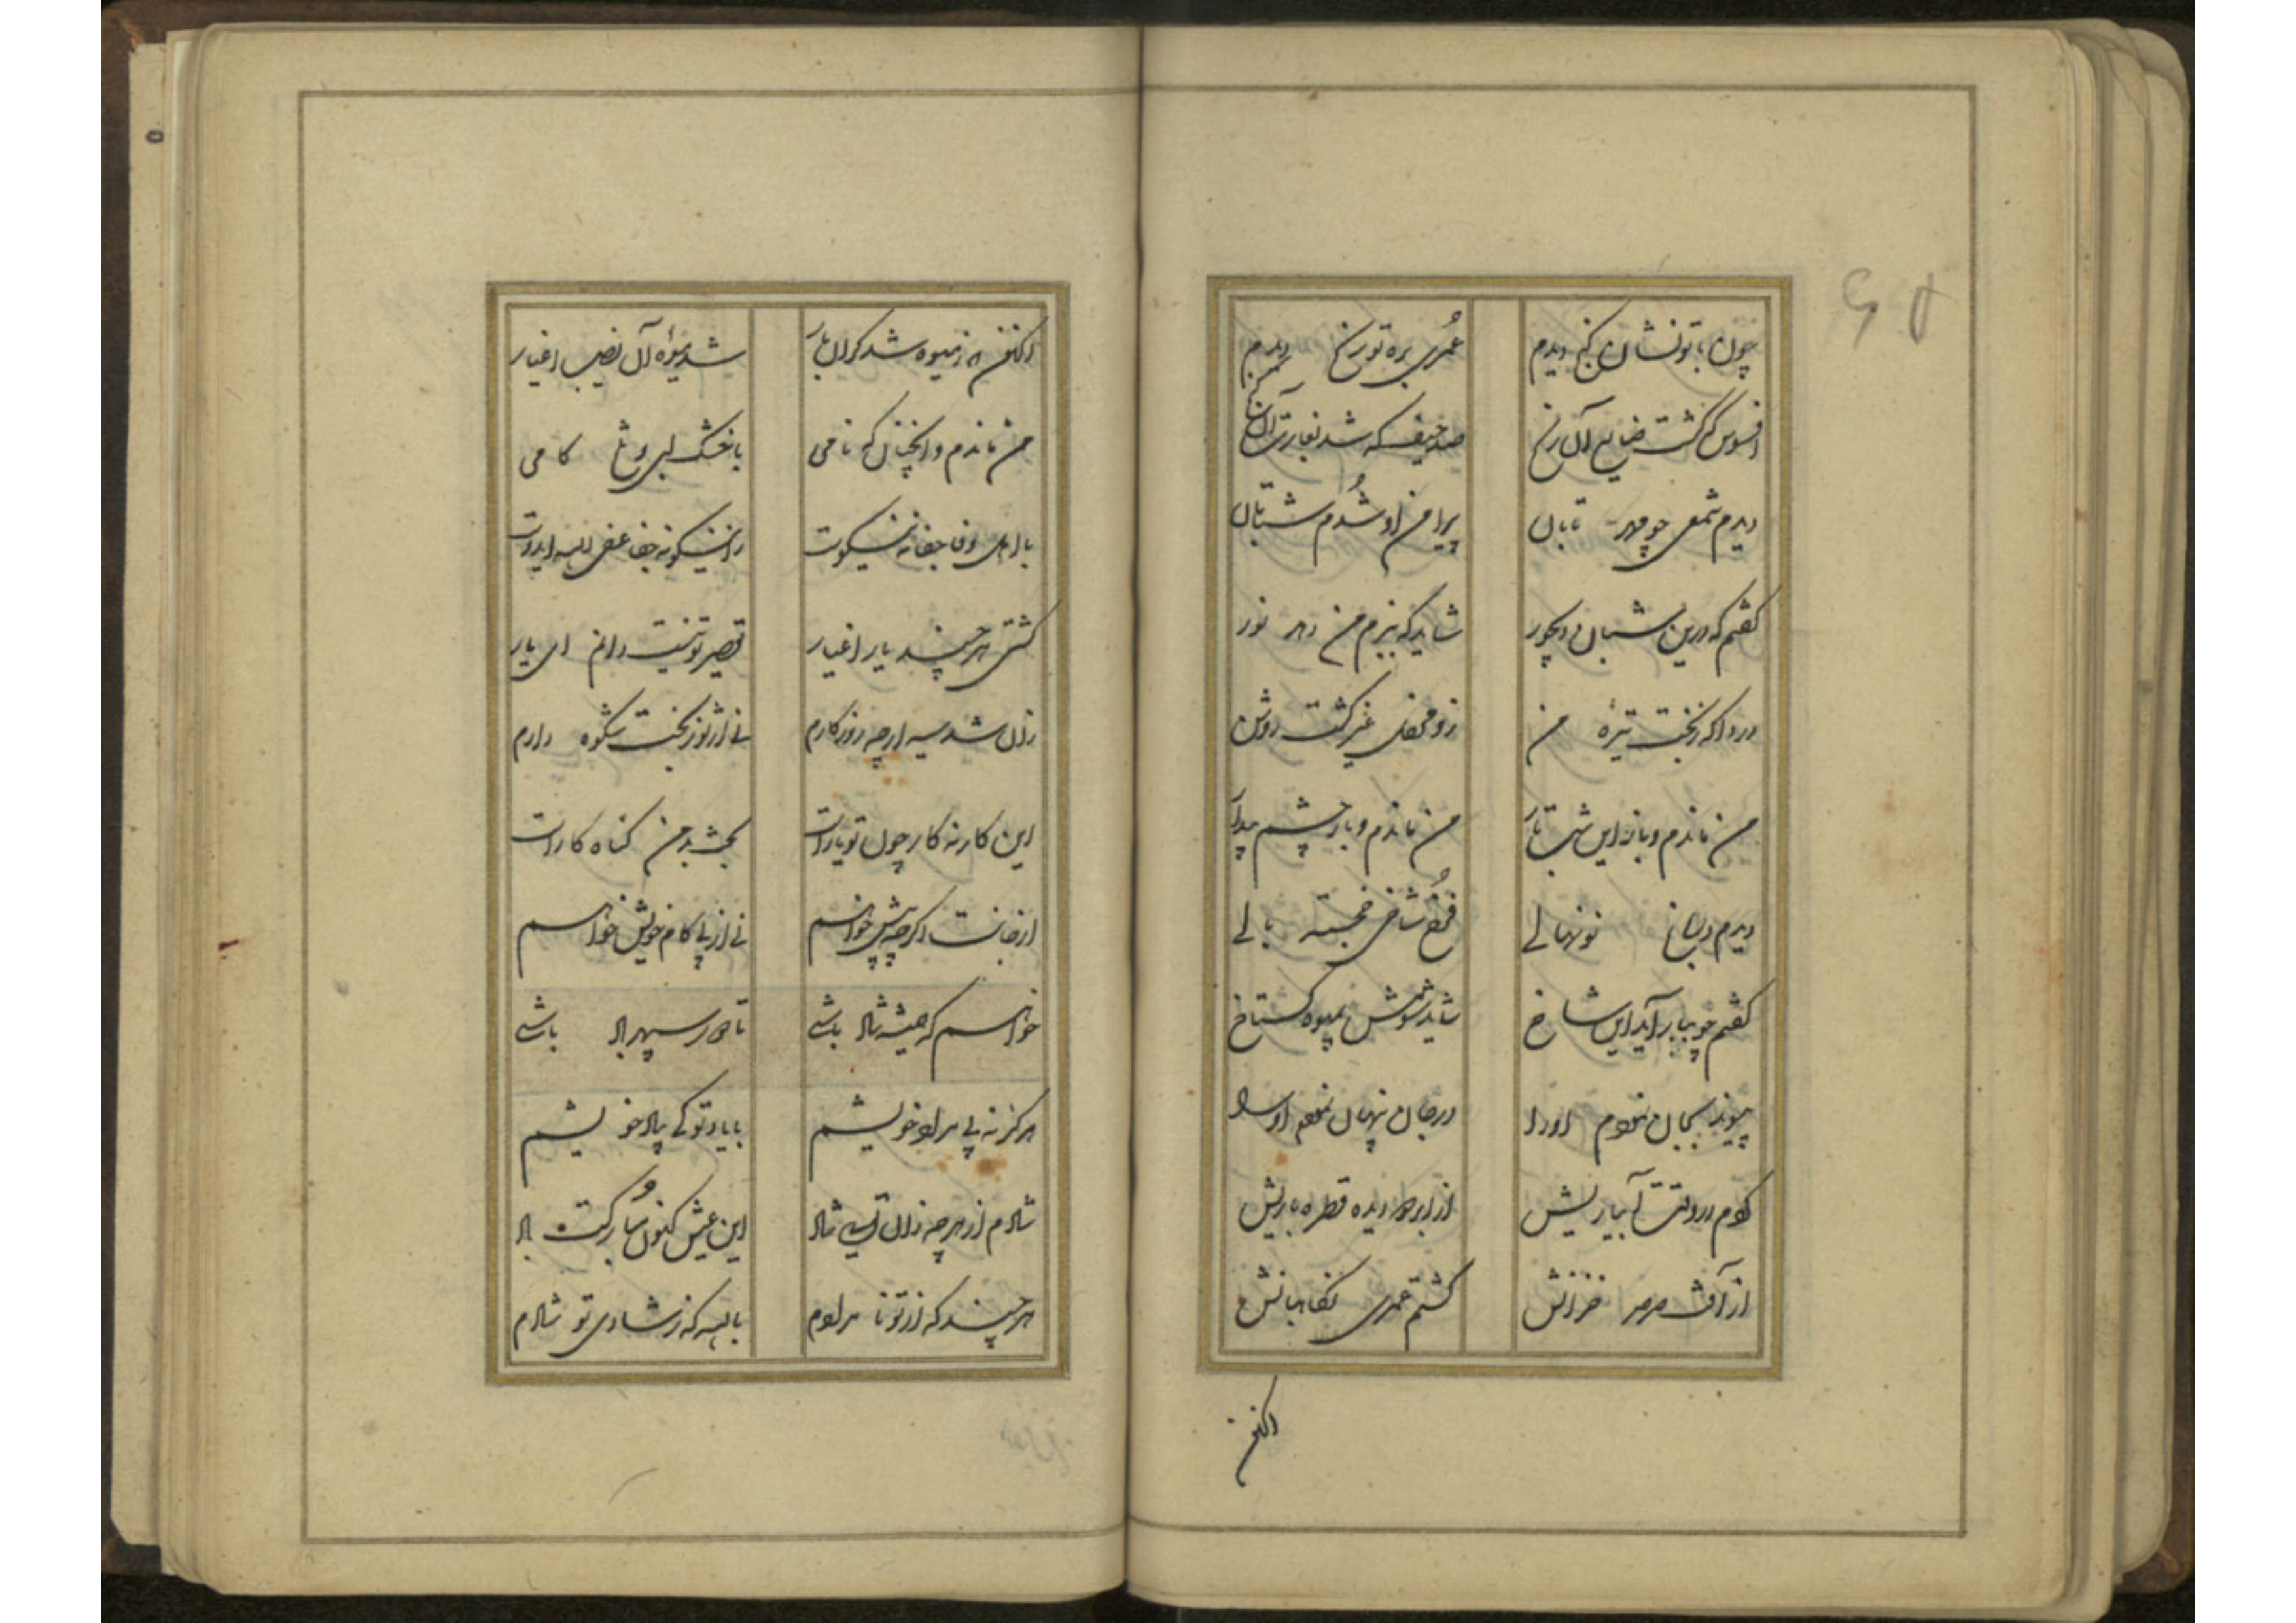 چون با تو نشان گنج دیدم عمری بره تو رنج دیدم
افسوس که گشت ضایع آن رنج صد حیف که شد بغارت آن گنج
دیدم شمعی چو مهر تابان پیرامن او شدم شتابان
گفتم که درین شبان دیجور شاید که ببزم من دهد نور
دردا که ز بخت تیرهٔ من زو محفل غیر گشت روشن
من ماندم و باز این شب تار من ماندم و باز چشم بیدار
دیدم نونهالی فرخ شاخی خجسته بالی
گفتم چو ببار آید این شاخ شاید شومش بمیوه گستاخ
پیوند بجان نمودم او را در جان پنهان نمودم او را
کردم در وقت آبیاریش از ابر دو دیده قطره باریش
از آفت صرصر خزانش گشتم عمری نگاهبانش
اکنون
اکنون که ز میوه شد گران بار شد میوهٔ آن نصیب اغیار
من ماندم و آنچنان که نامی با خشک لبی و تلخ کامی
با اهل وفا جفا نه نیکوست
گشتی هر چند یار اغیار تقصیر تو نیست دانم ای یار
زان شد سیه ار چه روزگارم نی از تو ز بخت شکوه دارم
این کار نه کار چون تو یار است بخت بد من گناه کار است
از جانت اگر چه بیش خواهم نی از پی کام خویش خواهم
خواهم که همیشه شاد باشی تا دور سپهر باد باشی
هرگز نه پی مراد خویشم با یاد تو کی بیاد خویشم
شادم از هر چه زان تویی شاد این عیش کنون مبارکت باد
هر چند که از تو نامرادم بالله که ز شادی تو شادم